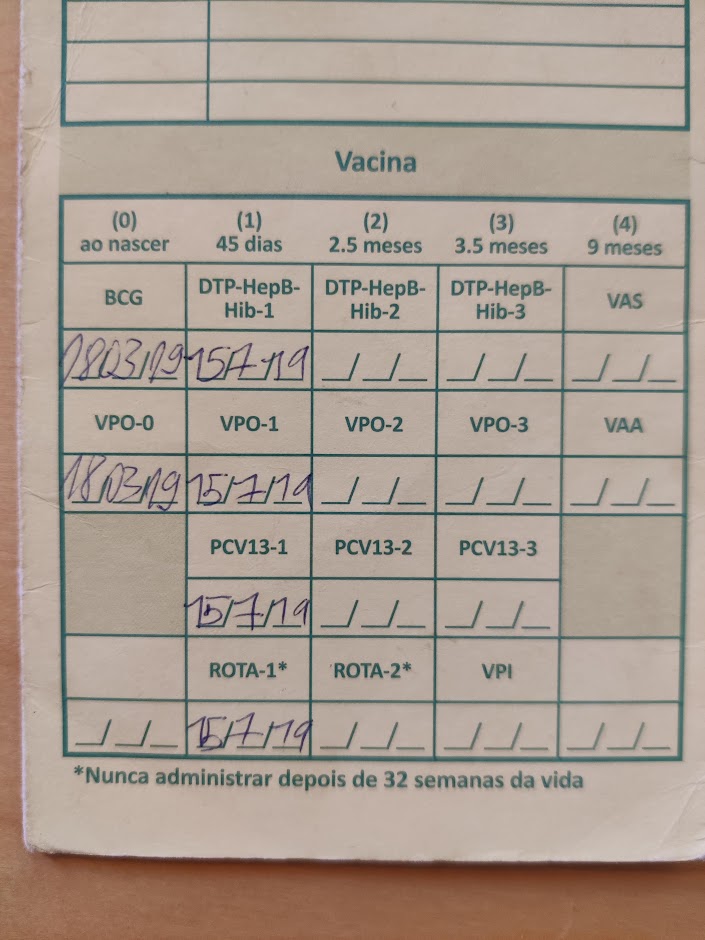 Vacina
(0) (1) (2) (3) (4)
ao nascer 45 dias 2.5 meses 3.5 meses 9 meses
BCG DTP-HepB-Hib-1 DTP-HepB-Hib-2 DTP-HepB-Hib-3 VAS
18/03/19 15/7/19 _/_/_ _/_/_ _/_/_
VPO-0 VPO-1 VPO-2 VPO-3 VAA
18/03/19 15/7/19 _/_/_ _/_/_ _/_/_
PCV13-1 PCV13-2 PCV13-3
15/7/19 _/_/_ _/_/_
ROTA-1* ROTA-2* VPI
_/_/_ 15/7/19 _/_/_ _/_/_ _/_/_
*Nunca administrar depois de 32 semanas da vida